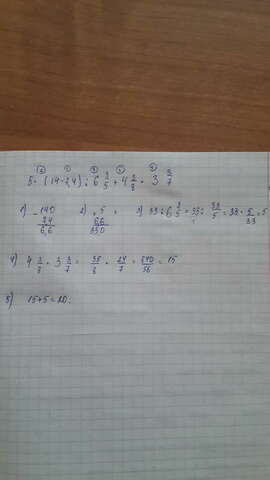 ② ① ③ ⑤ ④
5 · (14 - 7,4) : 6 3/5 + 4 3/8 · 3 3/7
1) - 140 74 6,6 2) × 5 6,6 330 3) 33 : 6 3/5 = 33 : 33/5 = 33 · 5/33 = 5
4) 4 3/8 · 3 3/7 = 35/8 · 24/7 = 840/56 = 15
5) 15 + 5 = 20.